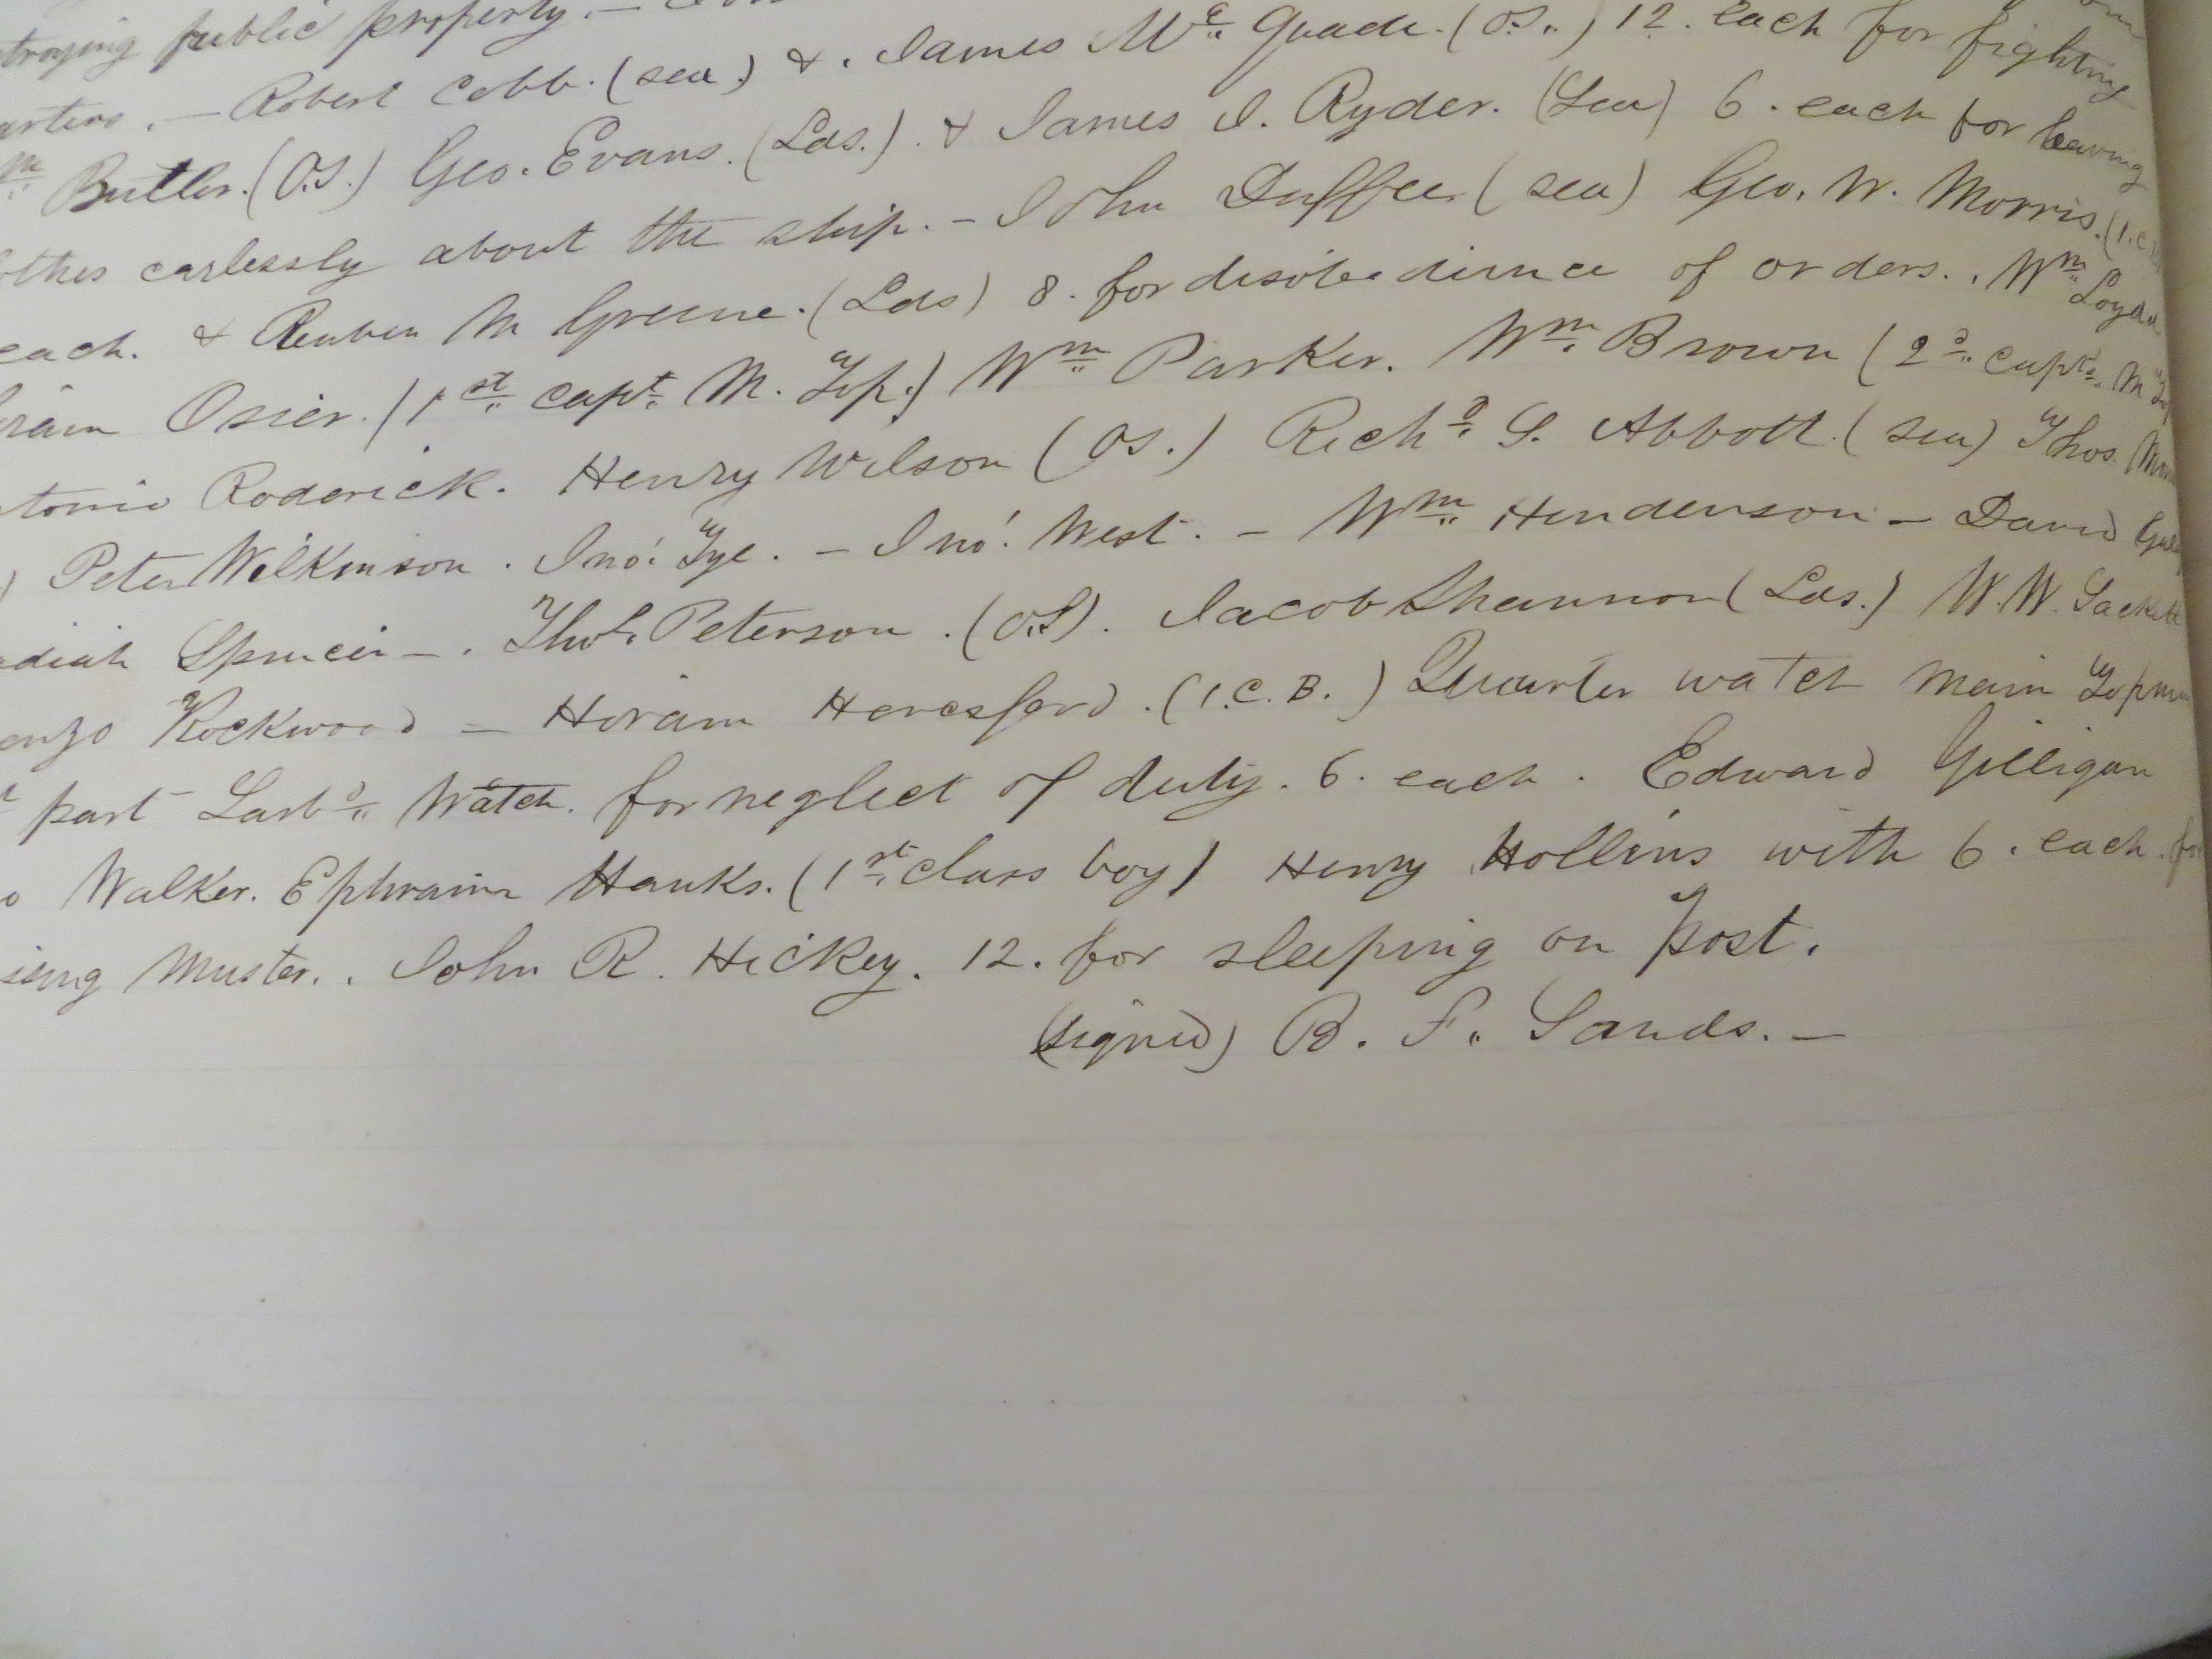 troying public property. –
arters. – Robert Cobb. (sea.) &. James Mc Quade. (O.S.) 12. each for fighting
m Butler. (O.S.) Geo. Evans. (Lds.). & James J. Ryder. (Sea) 6. each for leaving
othes carlessly about the ship. – John Duffee (sea) Geo. W. Morris. (1.C.
each. & Reuben M Greene. (Lds) 8. for disobedience of orders. . Wm Loyd
Osier. (1st capt. M. Top.) Wm Parker. Wm Brown (2d capt. M Top
tonio Roderick. Henry Wilson (OS.) Richd S. Abbott. (sea) Thos.
) Peter Wilkinson. Jno. Tye. – Jno. West. – Wm Henderson – David
adiah Spencer –. Thos. Peterson. (O.S). Jacob Shannon (Lds.) W. W. Sackett
enzo Rockwood – Hiram Heresford. (1.C.B.) Quarter watch main Topm
part Larbd Watch. for neglect of duty. 6. each. Edward Gilligan
o Walker. Ephraim Hanks. (1st class boy) Henry Hollins with 6. each. for
sing Muster. . John R. Hickey. 12. for sleeping on post.
(signed) B. F. Sands. –